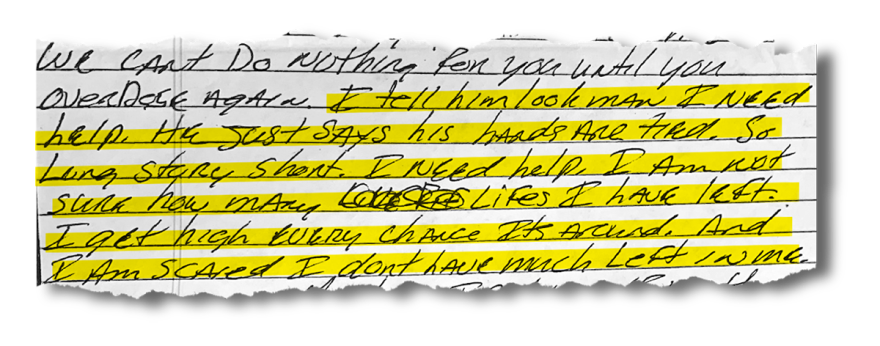 WE CANt Do NothiNg foR you uNtil you
OVERDOSE AgAiN. I tell him look mAN I NEED
help. HE Just SAys his hANDs ARE tied. So
LoNg stoRy shoRt. I NEED help. I Am Not
suRE how mANy LifEs I hAVE lEft.
I get high EVERy chANcE Its ARouND. AND
I Am scARED I doNt hAVE much LEft iN mE.